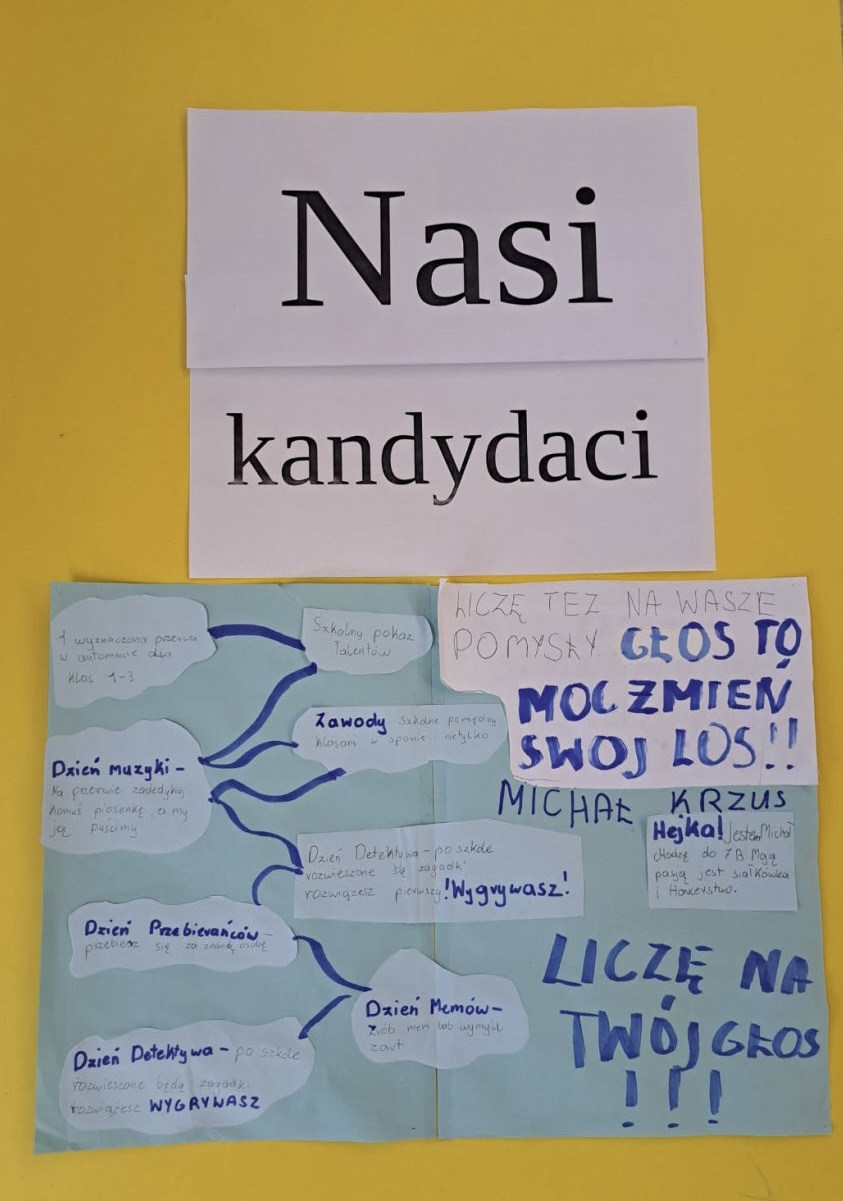 Nasi
kandydaci
1 wyznaczona przerwa
w automacie dla
klas 1-3
Szkolny pokaz
Talentów
Zawody szkolne pomiędzy
klasami w sporcie i nietylko
Dzień muzyki -
Na przerwie zadedykuj
komuś piosenkę, a my
ją puścimy
Dzień Detektywa - po szkole
rozwieszone są zagadki
rozwiążesz pierwszy !Wygrywasz!
Dzień Przebierańców -
przebierz się za znaną osobę
Dzień Memów -
Zrób mem lub wymyśl
żart
Dzień Detektywa - po szkole
rozwieszone będą zagadki
rozwiążesz WYGRYWASZ
LICZĘ TEŻ NA WASZE
POMYSŁY GŁOS TO
MOC ZMIEŃ
SWOJ LOS!!
MICHAŁ KRZUS
Hejka! Jestem Michał
chodzę do 7B Moją
pasją jest siatkówka
i Harcerstwo.
LICZĘ NA
TWÓJ GŁOS
!!!